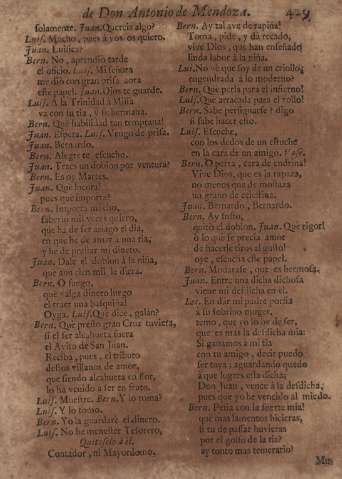 de Don Antonio de Mendoza. 429
solamente. Juan. Quereis algo?
Luis. Mucho, pues à vos os quiero.
Juan. Luisica?
Bern. No, aprendiò tarde
el oficio. Luis. Mi señora
me diò con gran prisa aora
este papel. Juan. Dios te guarde.
Luis. A la Trinidad à Missa
va con tu tia, y tu hermana.
Bern. Què habilidad tan temprana!
Juan. Espera. Luis. Vengo de prisa.
Juan. Bernardo.
Bern. Alegre te escucho.
Juan. Traes un doblon por ventura?
Bern. Es oy Martes.
Juan. Què locura!
pues què importa?
Bern. Importa mucho,
saberlo mil veces quiero,
que ha de ser aziago el dia,
en que he de amar à una tia,
y he de prestar mi dinero.
Juan. Dale el doblon à la niña,
que aun cien mil la diera.
Bern. O fuego,
què valga dinero luego
el traer una basquiña!
Oyga. Luis. Què dice, galàn?
Bern. Què presto gran Cruz tuviera,
si el ser alcahueta fuera
el Avito de San Juan.
Reciba, pues, el tributo
destos villanos de amor,
que siendo alcahueta en flor,
lo ha venido à ser en fruto.
Luis. Muestre. Bern. Y lo toma?
Luis. Y lo tomo.
Bern. Yo la guardarè el dinero.
Luis. No he menester Tesorero,
Quitaselo à èl.
Contador, ni Mayordomo.
Bern. Ay tal ave de rapiña!
Toma, pide, y dà recado,
vive Dios, que han enseñado
linda labor à la niña.
Luis. No ve que soy de un criollo
engendrada à lo moderno?
Bern. Què perla para el infierno!
Luis. Què arracada para el rollo!
Bern. Sabe persignarse? digo
si sabe hacer esto.
Luis. Escuche,
con los dedos de un estuche
en la cara de un amigo. Vase.
Bern. O perra, cara de endrina!
Vive Dios, que es la rapaza,
no menos que de mostaza
un grano de celestina.
Juan. Bernardo, Bernardo.
Bern. Ay susto,
quito el doblon. Juan. Què rigor!
ò lo que se precia amor
de hacerle tiros al gusto!
oye, escucha este papel.
Bern. Mudarase, que es hermosa.
Juan. Entre una dicha dichosa
viene mi desdicha en èl.
Lee. En dar mi padre porfia
à su sobrino muger,
temo, que yo lo he de ser,
que es mas la desdicha mia:
Si ganamos à mi tia
con tu amigo, decir puedo,
ser tuya; aguardando quedo
à que logres esta dicha;
Don Juan, vence à la desdicha,
pues que yo he vencido al miedo.
Bern. Pesia con la suerte mia!
què mas lamentos hicieras,
si tu de passar huvieras
por el golfo de la tia?
ay tonto mas temerario!
Mus